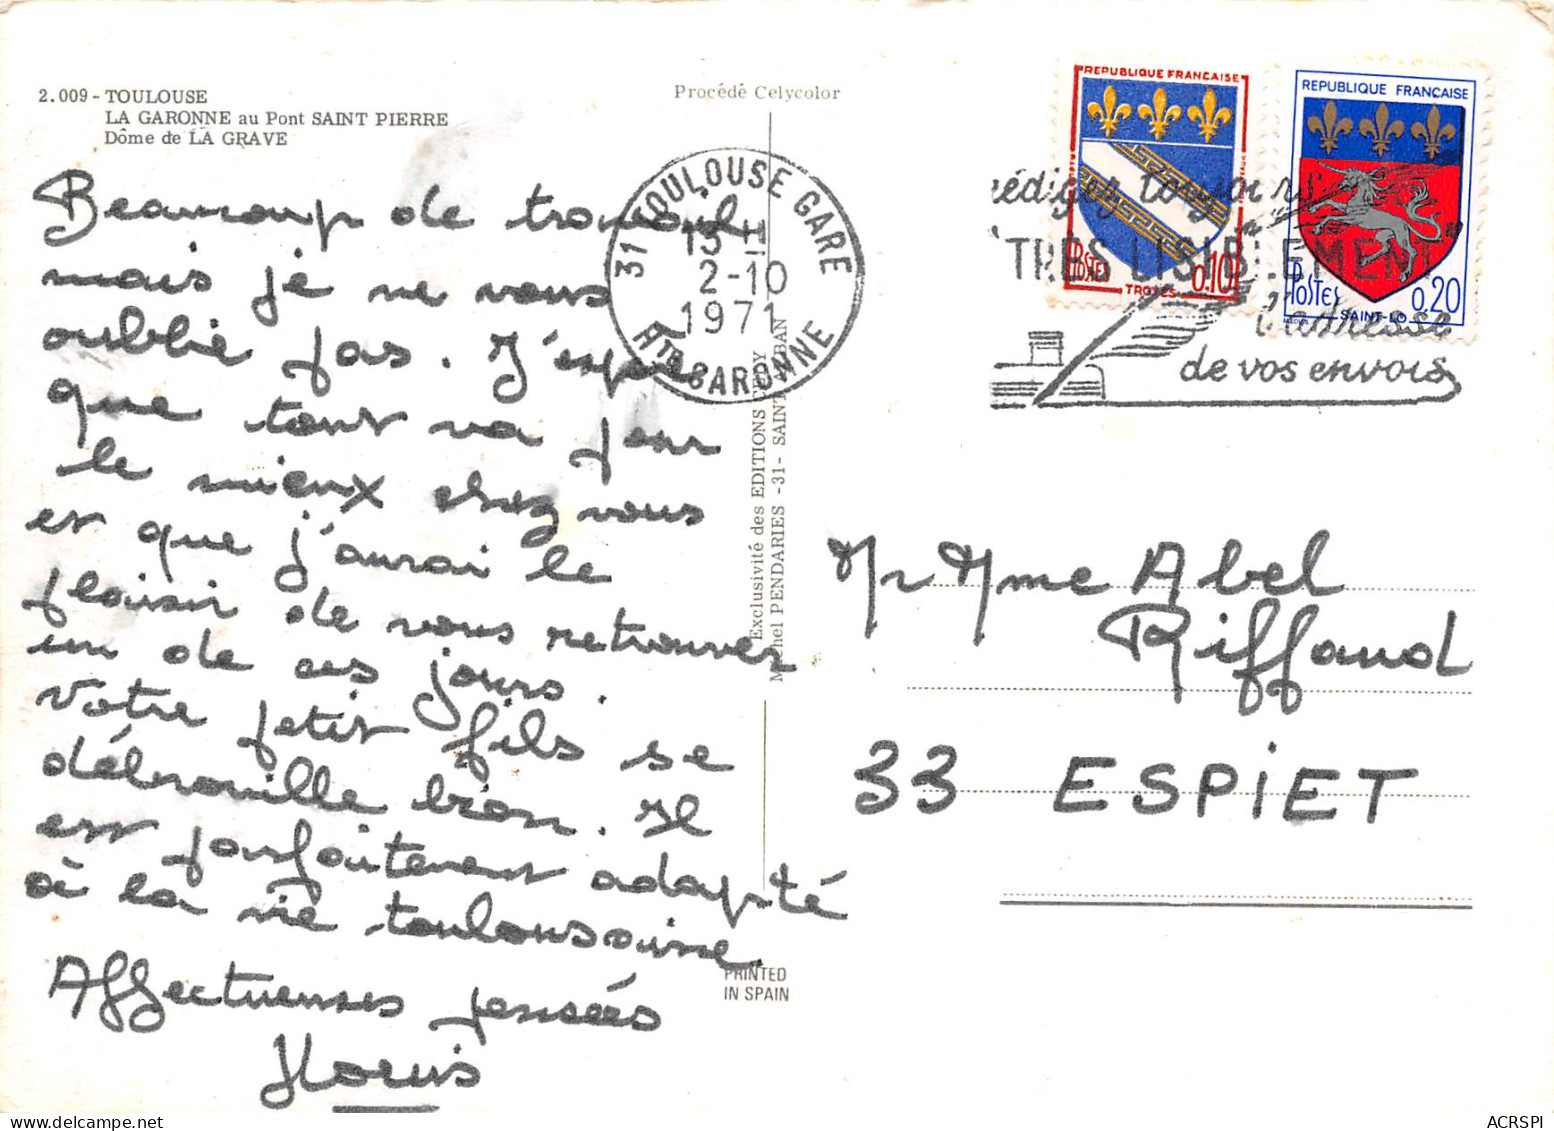 2.009 - TOULOUSE
LA GARONNE au Pont SAINT PIERRE
Dôme de LA GRAVE
Procédé Celycolor
Beaucoup de travail
mais je ne vous
oublie pas. J'espère
que tout va pour
le mieux chez vous
et que j'aurai le
plaisir de vous retrouver
un de ces jours.
Votre petit fils se
débrouille bien. Il
est parfaitement adapté
à la vie toulousaine
Affectueuses pensées
31 TOULOUSE GARE
15 H
2-10
1971
HTE GARONNE
Exclusivité des EDITIONS
PENDARIES -31- SAINT ALBAN
PRINTED
IN SPAIN
REPUBLIQUE FRANCAISE
POSTES 0.10
TROYES
REPUBLIQUE FRANÇAISE
POSTES 0.20
SAINT-LO
rédigez toujours
"TRES LISIBLEMENT"
l'adresse
de vos envois
Mr Mme Abel
Riffaud
33 ESPIET
ACRSPI